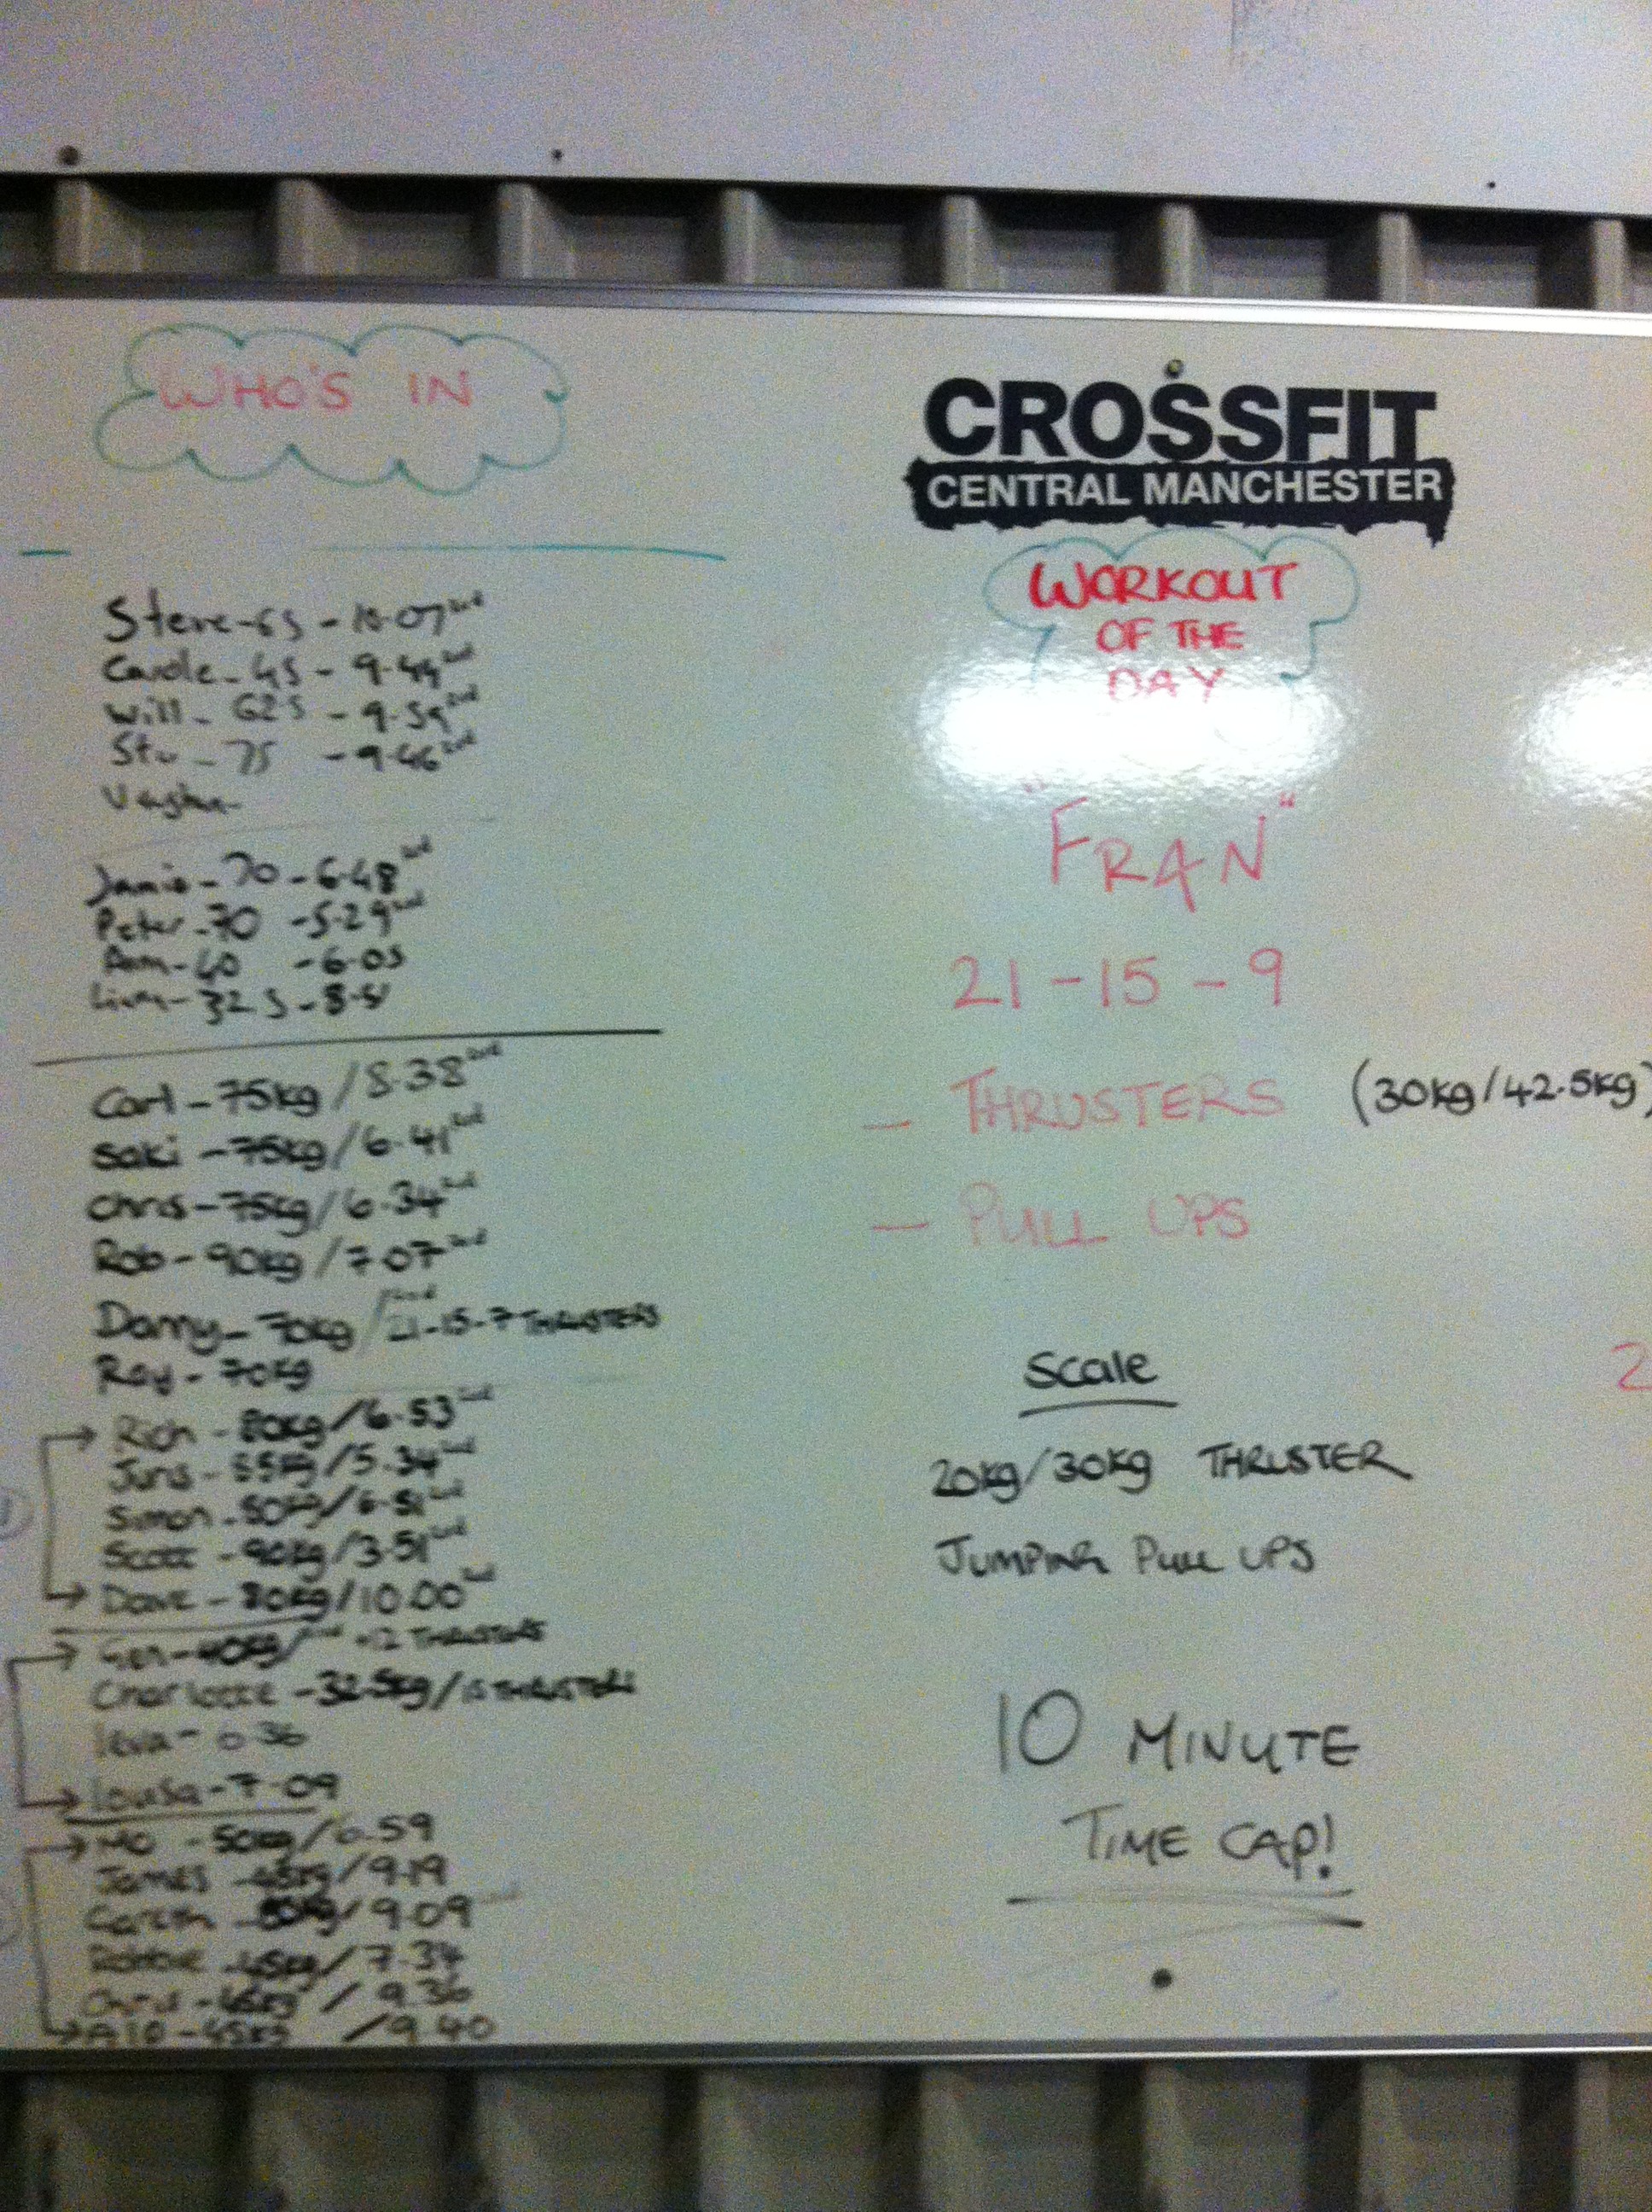 WHO'S IN
Steve - 65 - 10.07
Carole - 45 - 9.44
Will - 62.5 - 9.59
Stu - 75 - 9.46
Jamie - 70 - 6.48
Peter - 70 - 5.29
- 6.05
Liam - 32.5 -
Carl - 75kg / 8.38
Saki - 75kg / 6.41
Chris - 75kg / 6.34
Rob - 90kg / 7.07
Danny - 70kg / 21-15-7 THRUSTERS
Ray - 70kg
Rich - 80kg / 6.53
/ 5.34
Simon - / 6.51
Scott - 90kg / 3.51
Dave - 80kg / 10.00
Gen - 40kg / +12 THRUSTERS
Charlotte - 32.5kg / 15 THRUSTERS
Ieva - 6.36
Louisa - 7.09
Mo - 50kg / 6.59
James - / 9.19
Gareth - / 9.09
Robbie - 45kg / 7.34
Chris - / 9.36
- 45kg / 9.40
CROSSFIT
CENTRAL MANCHESTER
WORKOUT
OF THE
DAY
"FRAN"
21 - 15 - 9
- THRUSTERS (30kg/42.5kg)
- PULL UPS
Scale
20kg/30kg THRUSTER
JUMPING PULL UPS
10 MINUTE
TIME CAP!
2